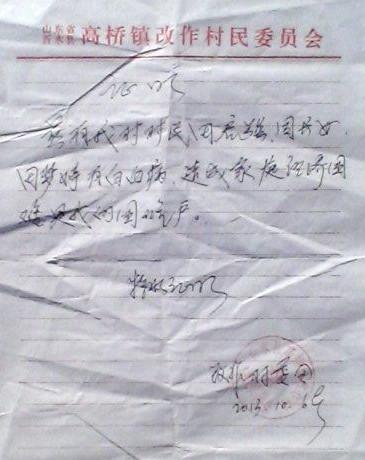 山东省沂水县 高桥镇改作村民委员会
证明
兹有我村村民 因
因 患有白血病，造成家庭经济困
难是我们困难户。
特此证明
改作村委会
2013.10.6号